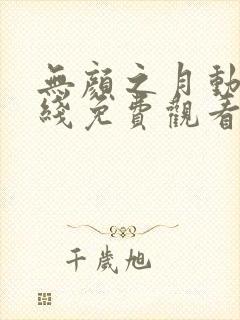 無顏之月動
綫免費觀看
千歲旭